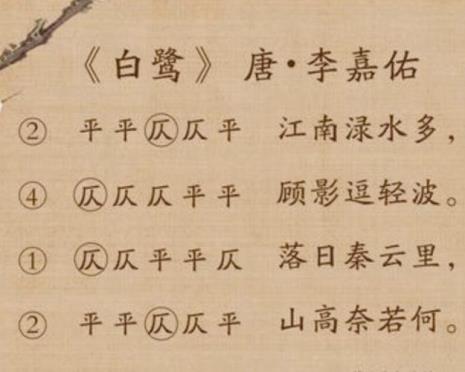 《白鹭》 唐·李嘉佑
② 平平㊀仄平 江南渌水多，
④ 仄仄仄平平 顾影逗轻波。
① 仄仄平平仄 落日秦云里，
② 平平仄仄平 山高奈若何。